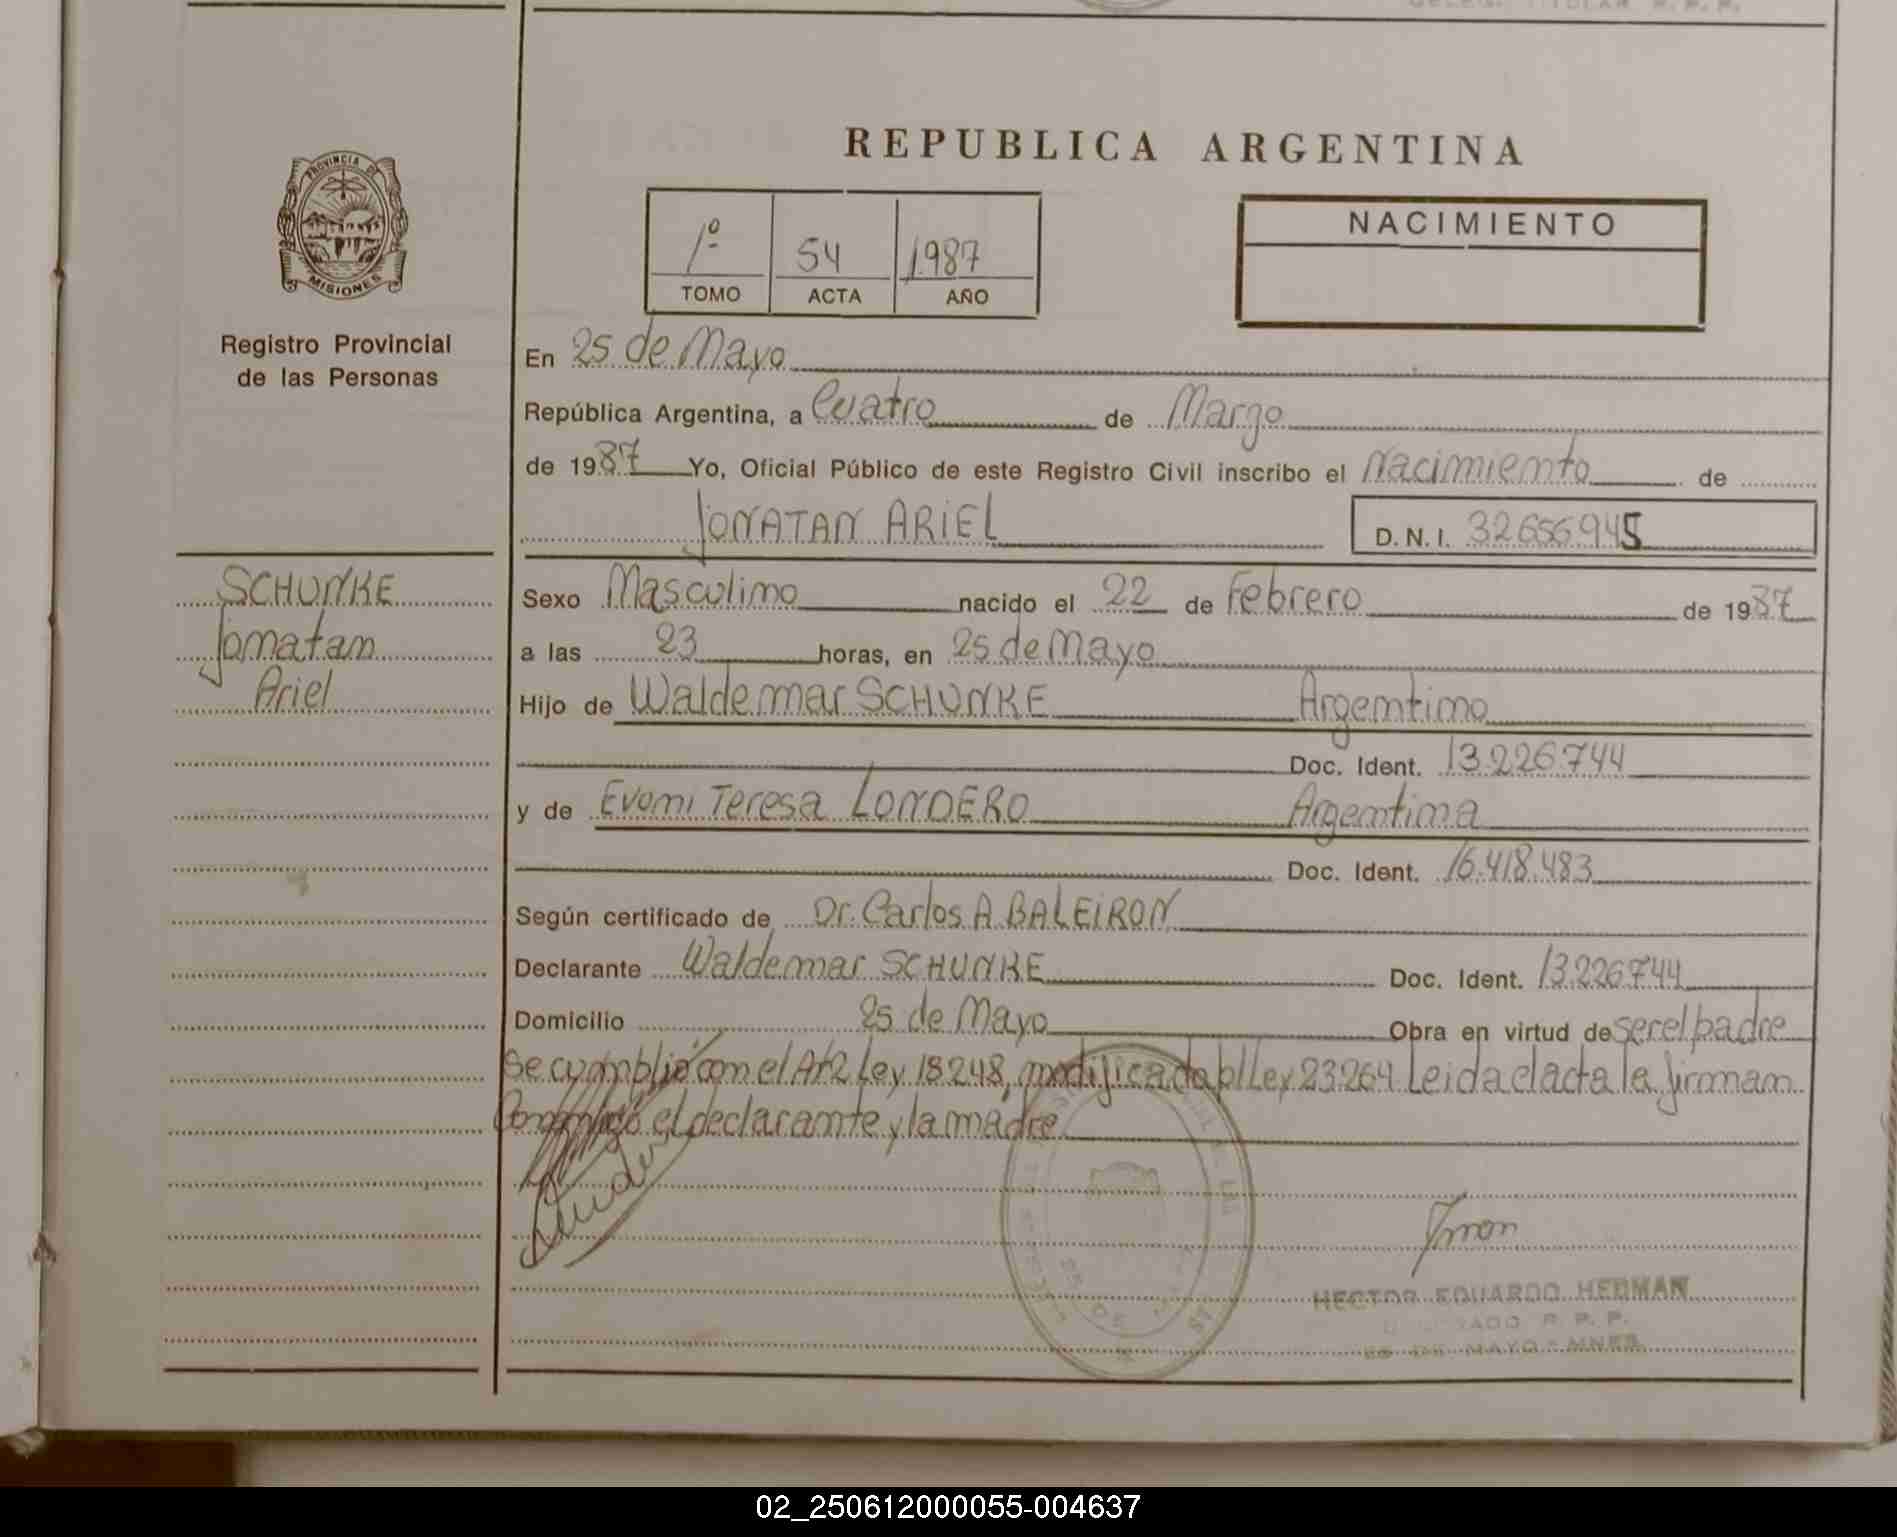 REPUBLICA ARGENTINA
PROVINCIA DE
MISIONES
Registro Provincial
de las Personas
1º 54 1987
TOMO ACTA AÑO
NACIMIENTO
En 25 de Mayo
República Argentina, a Cuatro de Marzo
de 1987 Yo, Oficial Público de este Registro Civil inscribo el Nacimiento de
JONATAN ARIEL D.N.I. 32656945
SCHUNKE
Jonatan
Ariel
Sexo Masculino nacido el 22 de Febrero de 1987
a las 23 horas, en 25 de Mayo
Hijo de Waldemar SCHUNKE Argentino
Doc. Ident. 13.226.744
y de Evoni Teresa LONDERO Argentina
Doc. Ident. 16.418.483
Según certificado de Dr. Carlos A. BALEIRON
Declarante Waldemar SCHUNKE Doc. Ident. 13.226744
Domicilio 25 de Mayo Obra en virtud de ser el padre
Se cumplió con el Art2 Ley 18248, modificada p/ Ley 23.264 Leida el acta la firman
Conmigo el declarante y la madre
25 DE
HECTOR EDUARDO HEDMAN
R. P. P.
25 DE MAYO - MNES.
02_250612000055-004637